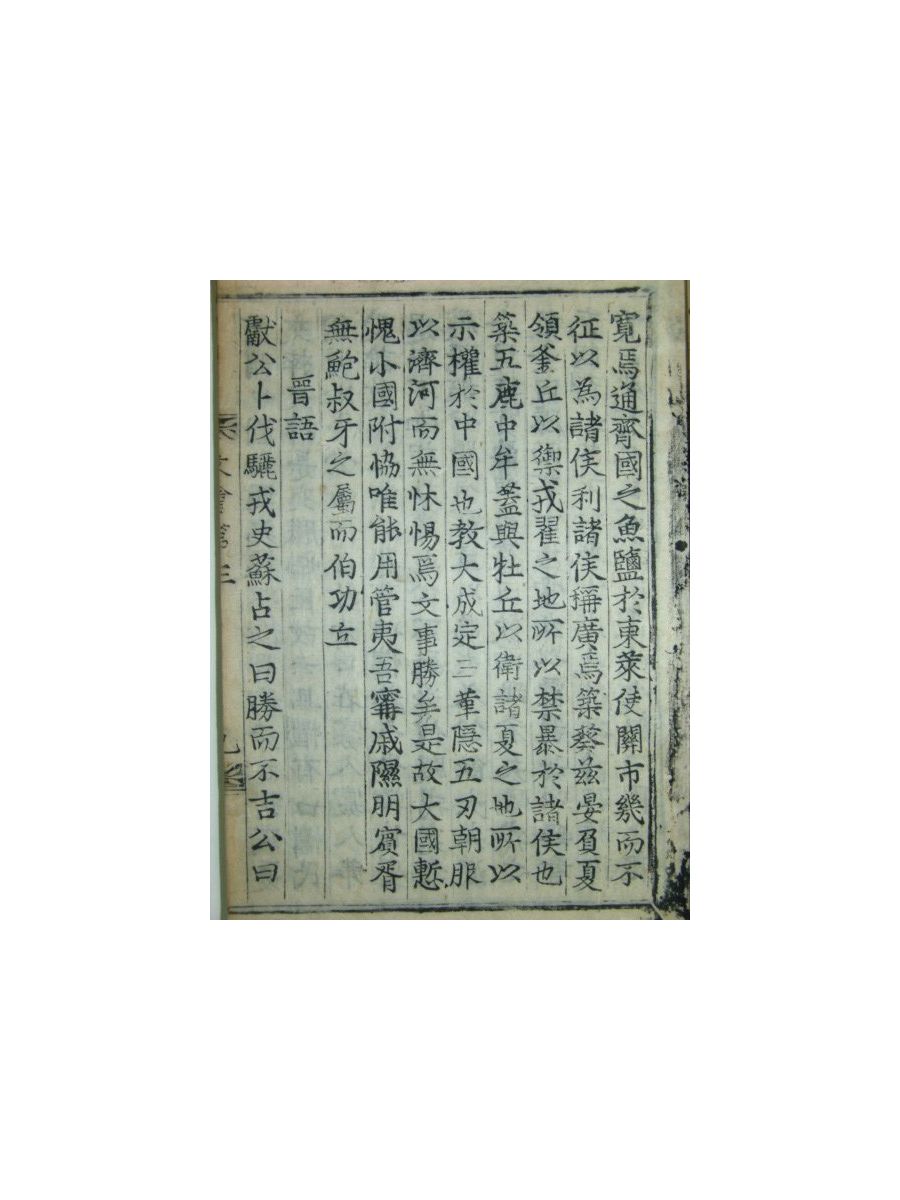 寬焉通齊國之魚鹽於東萊使關市幾而不
征以為諸侯利諸侯稱廣焉築葵茲晏負夏
領釜丘以禦戎翟之地所以禁暴於諸侯也
築五鹿中牟蓋與牡丘以衛諸夏之地所以
示權於中國也教大成定三革隱五刃朝服
以濟河而無怵惕焉文事勝矣是故大國慙
愧小國附協唯能用管夷吾甯戚隰明賓胥
無鮑叔牙之屬而伯功立
晉語
獻公卜伐驪戎史蘇占之曰勝而不吉公曰
文會第三
九